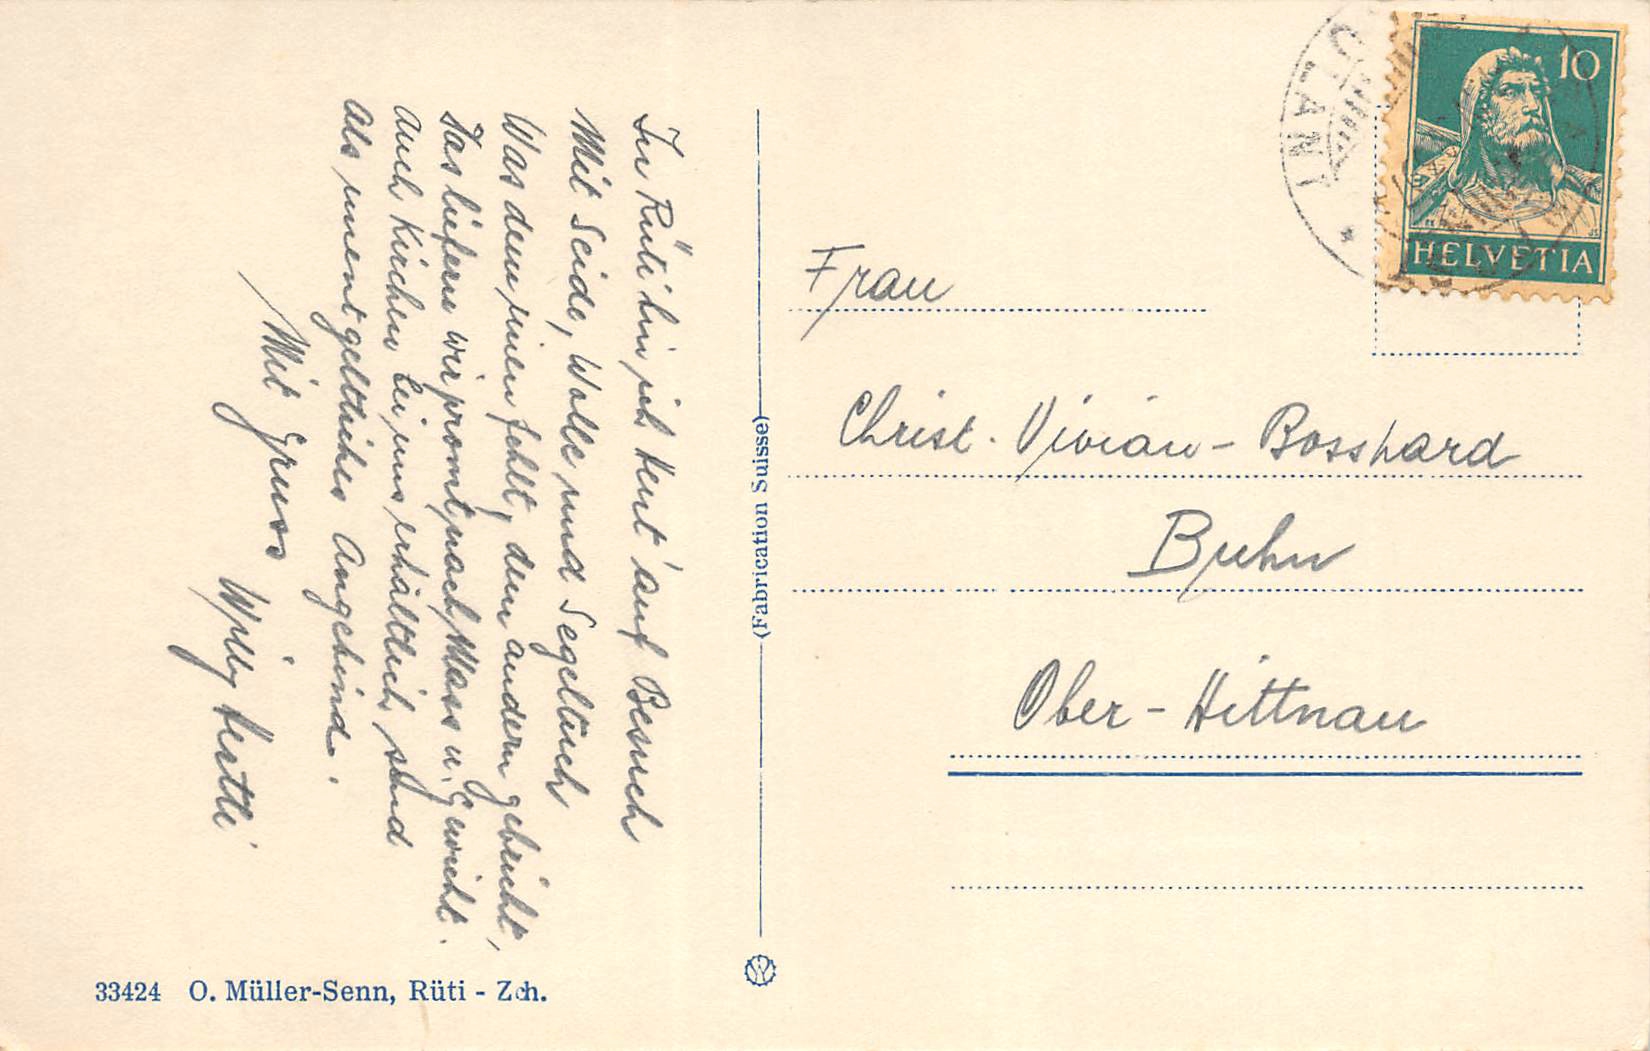 In Rüti bin ich heut auf Besuch
Mit Seide, Wolle und Segeltuch
Was dem einen fehlt, dem andern gebricht,
Das liefern wir promt nach Mass u. Gewicht.
Auch Kirchen bei uns erhältlich sind
Als unentgeltliches Angebind.
Mit Gruss Willy
Frau
Christ. Vivian - Bosshard
Ober - Hittnau
(Fabrication Suisse)
33424 O. Müller-Senn, Rüti - Zch.
10
HELVETIA